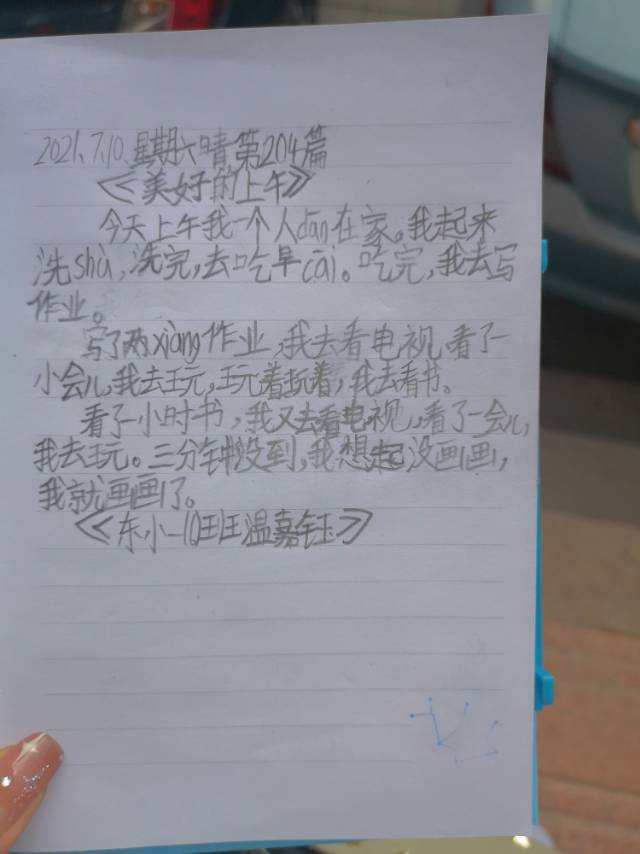 2021.7.10.星期六晴第204篇
《美好的上午》
今天上午我一个人dān在家。我起来
洗shù,洗完,去吃早cāi。吃完,我去写
作业。
写了两xiàng作业,我去看电视,看了一
小会儿,我去玩,玩着玩着,我去看书。
看了一小时书,我又去看电视,看了一会儿,
我去玩。三分钟没到,我想起没画画,
我就画画了。
《东小一(1)王王温嘉钰》